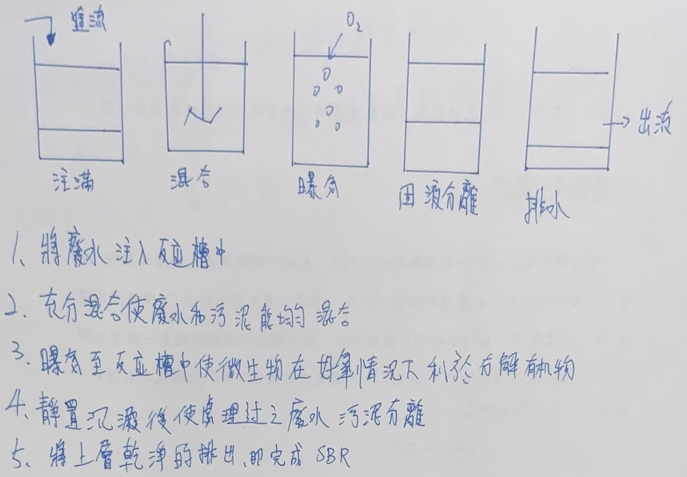 進流
O₂
出流
注滿
混合
曝氣
固液分離
排水
1、將廢水注入反應槽中
2、充分混合使廢水和污泥能均勻混合
3、曝氣至反應槽中使微生物在好氧情況下利於分解有機物
4、靜置沉澱後使處理過之廢水污泥分離
5、將上層乾淨的排出,即完成 SBR